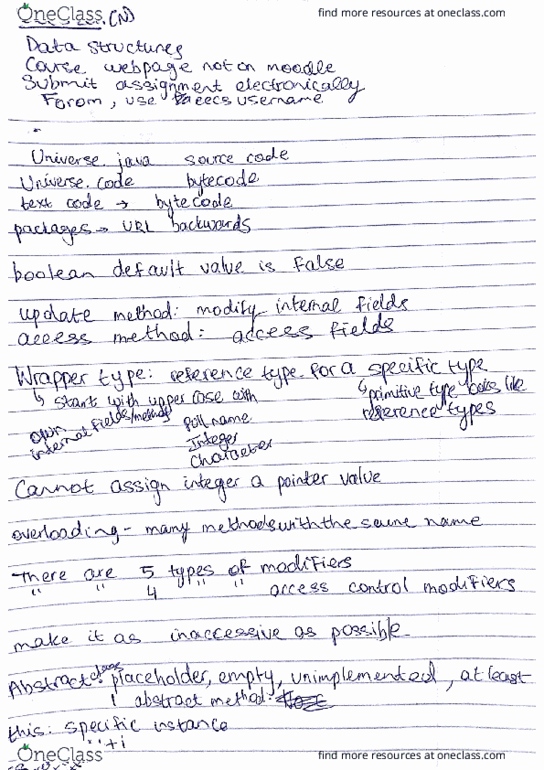 OneClass (N) find more resources at oneclass.com
Data structures
Course webpage not on moodle
Submit assignment electronically
Forom, use eecs username
Universe.java source code
Universe.code bytecode
text code → bytecode
packages → URL backwards
boolean default value is false
update method: modify internal fields
access method: access fields
Wrapper type: reference type for a specific type
↳ start with upper case with ↳ primitive type looks like
own internal fields/method full name reference types
Integer
Character
Cannot assign integer a pointer value
overloading - many methods with the same name
There are 5 types of modifiers
" " 4 " " access control modifiers
make it as inaccessive as possible
Abstract class: placeholder, empty, unimplemented, at least
1 abstract method.
this: specific instance
OneClass find more resources at oneclass.com